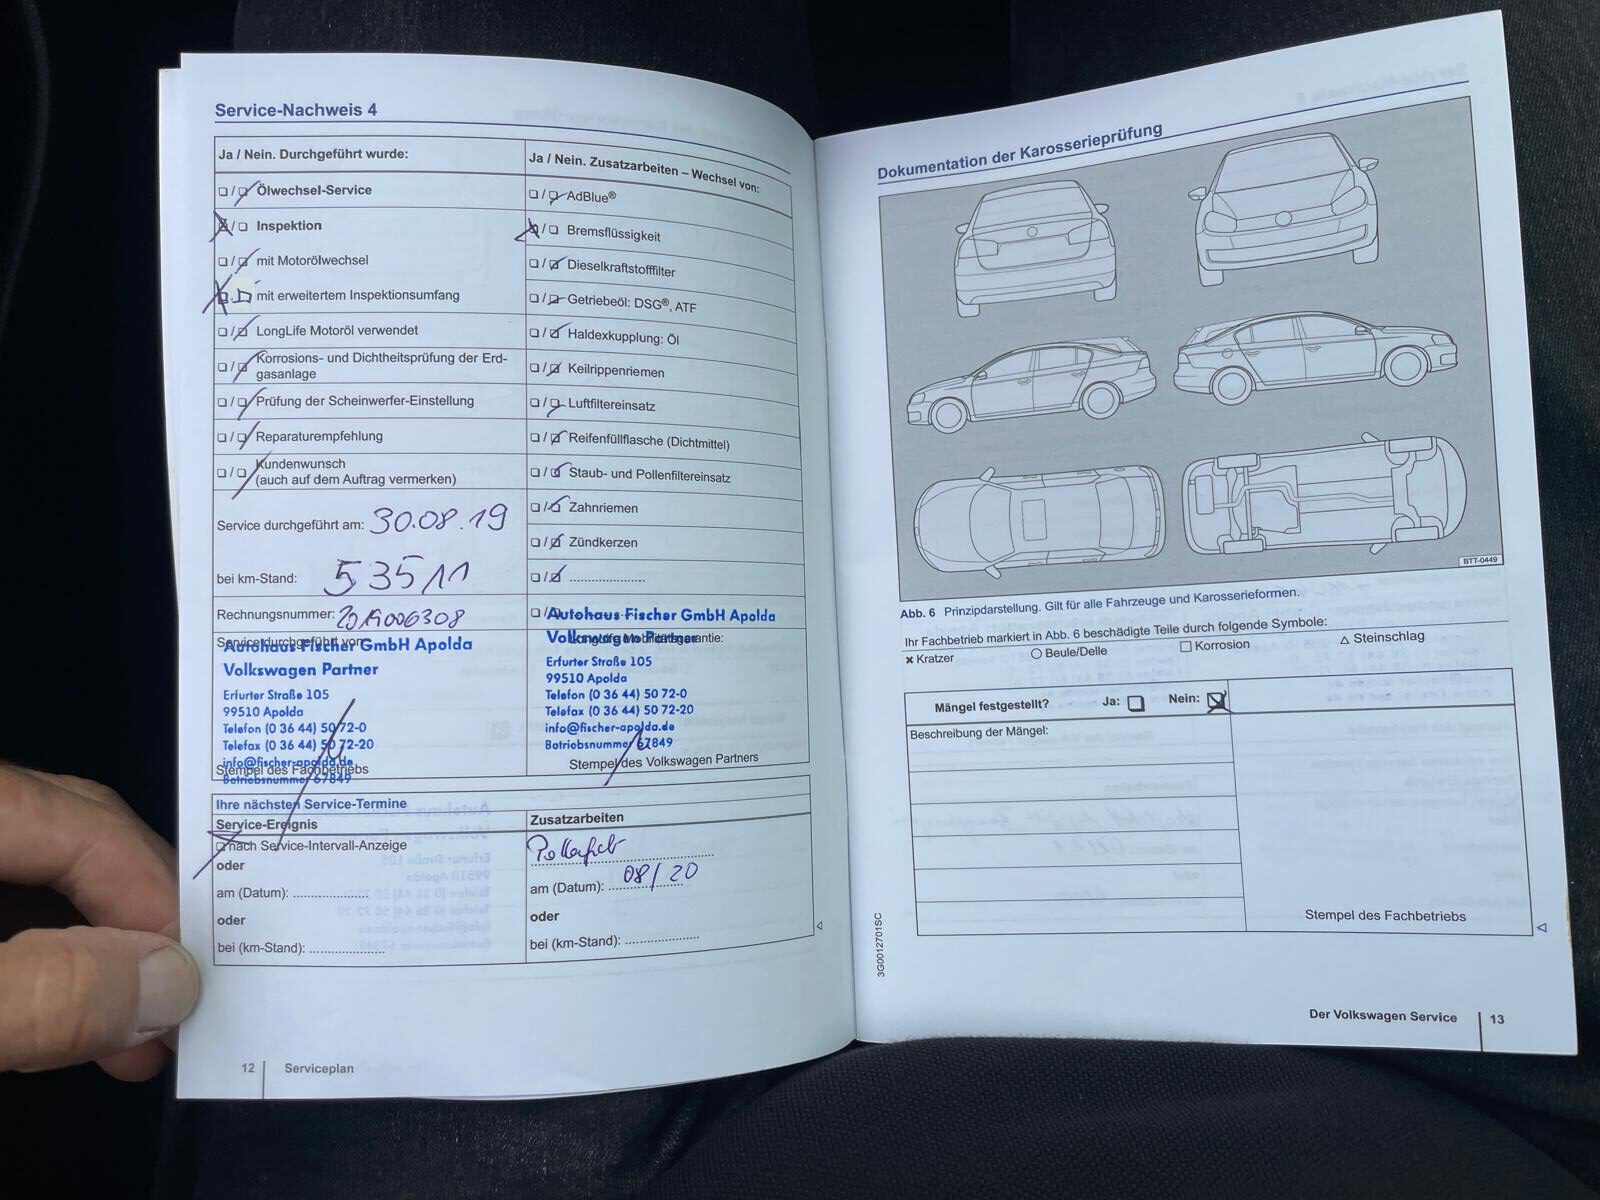 Service-Nachweis 4
Ja / Nein. Durchgeführt wurde:
Ölwechsel-Service
Inspektion
mit Motorölwechsel
mit erweitertem Inspektionsumfang
LongLife Motoröl verwendet
Korrosions- und Dichtheitsprüfung der Erd-
gasanlage
Prüfung der Scheinwerfer-Einstellung
Reparaturempfehlung
Kundenwunsch
(auch auf dem Auftrag vermerken)
Service durchgeführt am: 30.08.19
bei km-Stand: 53511
Rechnungsnummer: 2019006308
Service durchgeführt von:
Autohaus Fischer GmbH Apolda
Volkswagen Partner
Erfurter Straße 105
99510 Apolda
Telefon (0 36 44) 50 72-0
Telefax (0 36 44) 50 72-20
info@fischer-apolda.de
Betriebsnummer 67849
Stempel des Fachbetriebs
Ja / Nein. Zusatzarbeiten – Wechsel von:
AdBlue®
Bremsflüssigkeit
Dieselkraftstofffilter
Getriebeöl: DSG®, ATF
Haldexkupplung: Öl
Keilrippenriemen
Luftfiltereinsatz
Reifenfüllflasche (Dichtmittel)
Staub- und Pollenfiltereinsatz
Zahnriemen
Zündkerzen
Autohaus Fischer GmbH Apolda
Volkswagen Partner
Erfurter Straße 105
99510 Apolda
Telefon (0 36 44) 50 72-0
Telefax (0 36 44) 50 72-20
info@fischer-apolda.de
Betriebsnummer 67849
Stempel des Volkswagen Partners
Ihre nächsten Service-Termine
Service-Ereignis
nach Service-Intervall-Anzeige
oder
am (Datum): ....................
oder
bei (km-Stand): ....................
Zusatzarbeiten
am (Datum): 08/20
oder
bei (km-Stand): ....................
12 Serviceplan
Dokumentation der Karosserieprüfung
BTT-0449
Abb. 6 Prinzipdarstellung. Gilt für alle Fahrzeuge und Karosserieformen.
Ihr Fachbetrieb markiert in Abb. 6 beschädigte Teile durch folgende Symbole:
× Kratzer ○ Beule/Delle □ Korrosion △ Steinschlag
Mängel festgestellt? Ja: Nein:
Beschreibung der Mängel:
Stempel des Fachbetriebs
3G0012701SC
Der Volkswagen Service 13